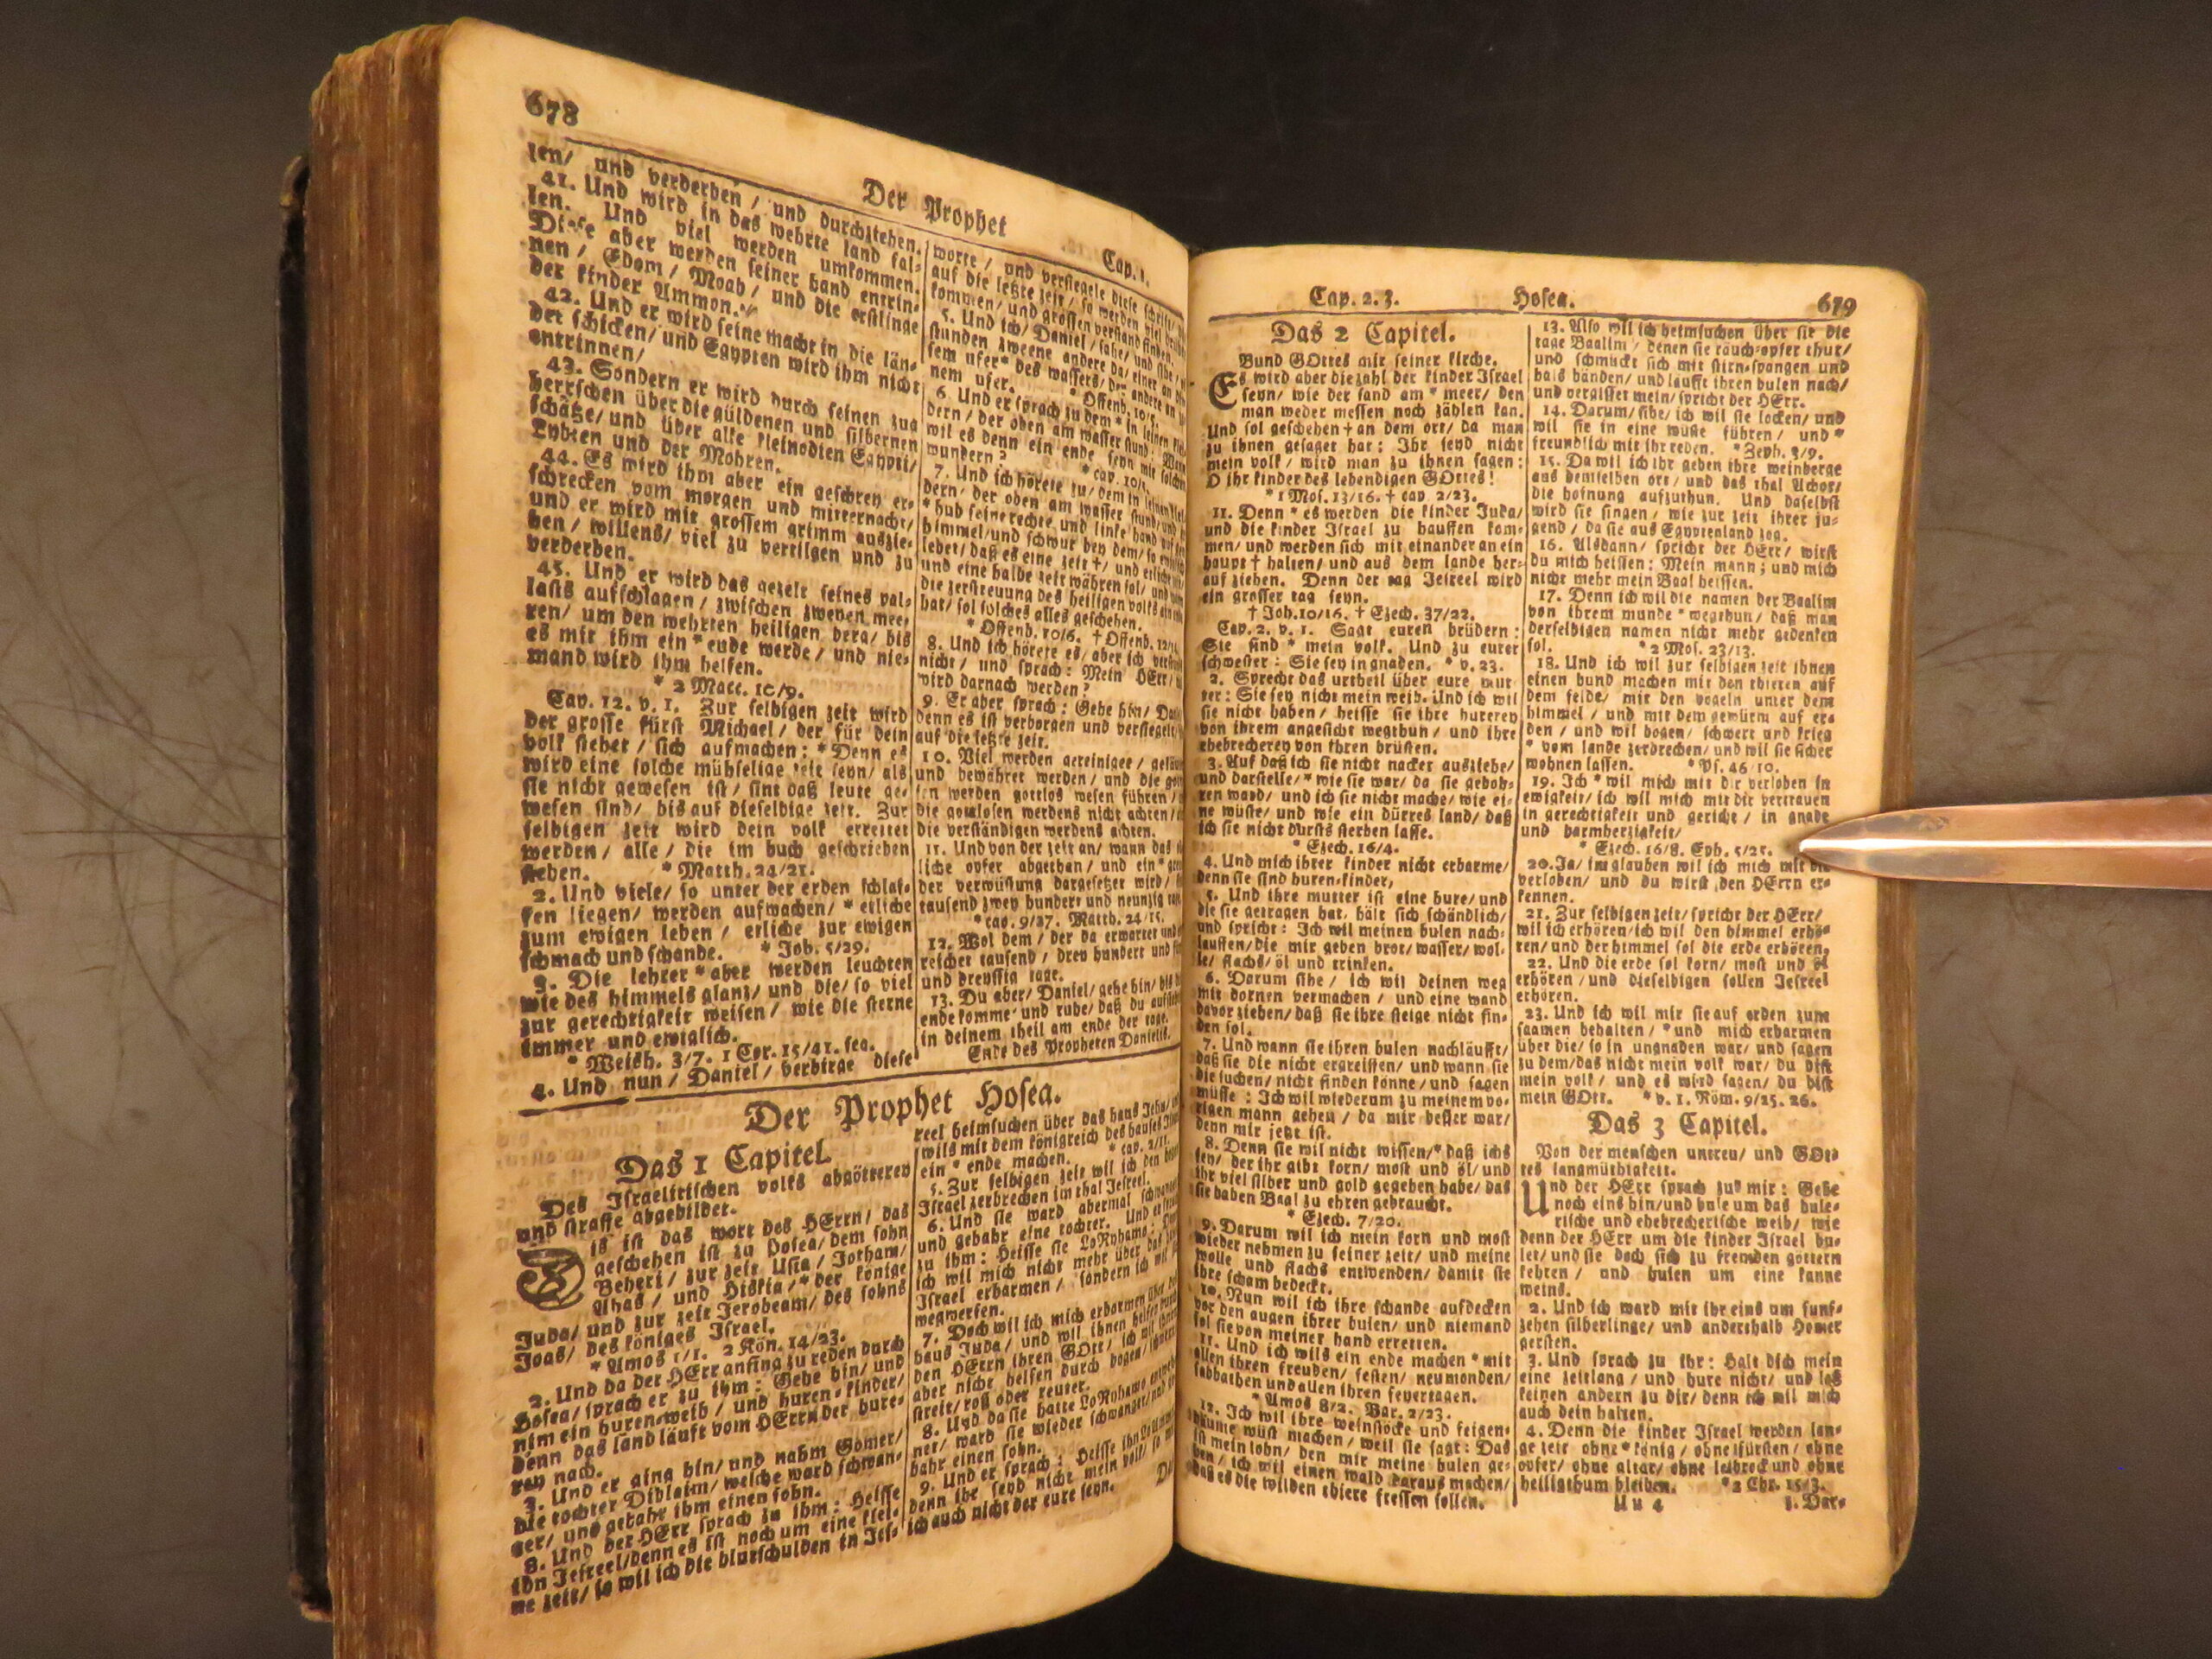 678
Der Prophet
Cap. 1.
zen/ und verderben / und durchziehen.
41. Und wird in das wehrte land fal-
len. Und viel werden umkommen.
Diese aber werden seiner hand entrin-
nen / Edom / Moab / und die erstlinge
der kinder Ammon.
42. Und er wird seine macht in die län-
der schicken/ und Egypten wird ihm nicht
entrinnen/
43. Sondern er wird durch seinen zug
herrschen über die güldenen und silbernen
schätze/ und über alle kleinodien Egypti/
Lybien und der Mohren.
44. Es wird ihm aber ein geschrey er-
schrecken vom morgen und mitternacht/
und er wird mit grossem grimm auszie-
hen/ willens/ viel zu vertilgen und zu
verderben.
45. Und er wird das gezelt seines pal-
lasts aufschlagen / zwischen zweyen mee-
ren/ um den wehrten heiligen berg/ bis
es mit ihm ein * ende werde / und nie-
mand wird ihm helfen.
* 2 Macc. 10/9.
Cap. 12. v. 1. Zur selbigen zeit wird
der grosse fürst Michael / der für dein
volk stehet / sich aufmachen: * Denn es
wird eine solche mühselige zeit seyn/ als
sie nicht gewesen ist / sint daß leute ge-
wesen sind/ bis auf dieselbige zeit. Zur
selbigen zeit wird dein volk errettet
werden / alle / die im buch geschrieben
stehen. * Matth. 24/21.
2. Und viele/ so unter der erden schlaf-
fen liegen/ werden aufwachen/ * etliche
zum ewigen leben / etliche zur ewigen
schmach und schande. * Joh. 5/29.
3. Die lehrer * aber werden leuchten
wie des himmels glanz/ und die/ so viel
zur gerechtigkeit weisen / wie die sterne
immer und ewiglich.
* Weish. 3/7. 1 Cor. 15/41. seq.
4. Und nun / Daniel / verbirge diese
worte / und versiegele diese schrift/
auf die letzte zeit / so werden viel
kommen/ und grossen verstand finden.
5. Und ich/ Daniel / sahe/ und sihe/
stunden zweene andere da/ einer an
sem ufer* des wassers/ der andere an
nem ufer. * Offenb. 10/5.
6. Und er sprach zu dem * in leinen
dern / der oben am wasser stund: Wann
wil es denn ein ende seyn mit solchen
wundern? * cap. 10/5.
7. Und ich hörete zu/ dem in leinen
dern/ der oben am wasser stund/ und
* hub seine rechte und linke hand auf gen
himmel/ und schwur bey dem/ so ewiglich
lebet/ daß es eine zeit †/ und etliche
und eine halbe zeit währen sol/ und
die zerstreuung des heiligen volks ein
hat/ sol solches alles geschehen.
* Offenb. 10/6. † Offenb. 12/14.
8. Und ich hörete es/ aber ich verstund
nicht / und sprach: Mein HErr/
wird darnach werden?
9. Er aber sprach: Gehe hin/
denn es ist verborgen und versiegelt/
auf die letzte zeit.
10. Viel werden gereiniget / geläu
und bewähret werden/ und die
sen werden gottlos wesen führen /
die gottlosen werdens nicht achten/
die verständigen werdens achten.
11. Und von der zeit an/ wann das
liche opfer abgethan / und ein *
der verwüstung dargesetzet wird /
tausend zwey hundert und neunzig
* cap. 9/27. Matth. 24/15.
12. Wol dem / der da erwartet und
reichet tausend / drey hundert und
und dreyssig tage.
13. Du aber/ Daniel/ gehe hin/ bis
ende komme/ und ruhe/ daß du aufstehest
in deinem theil am ende der tage.
Ende des Propheten Daniels.
Der Prophet Hosea.
Das 1 Capitel.
Des Israelitischen volks abgötterey
und straffe abgebildet.
Dis ist das wort des HErrn/ das
geschehen ist zu Hosea/ dem sohn
Beheri/ zur zeit Usia / Jotham/
Ahas / und Hiskia/ * der könige
Juda/ und zur zeit Jerobeam/ des sohns
Joas/ des königes Israel.
* Amos 1/1. 2 Kön. 14/23.
2. Und da der HErr anfing zu reden durch
Hosea/ sprach er zu ihm: Gehe hin/ und
nim ein huren-weib / und huren-kinder/
denn das land läuft vom HErrn der hure-
rey nach.
3. Und er ging hin/ und nahm Gomer/
die tochter Diblaim/ welche ward schwan-
ger/ und gebahr ihm einen sohn.
4. Und der HErr sprach zu ihm: Heisse
ihn Jesreel/ denn es ist noch um eine klei-
ne zeit/ so wil ich die blutschulden in Jes-
reel heimsuchen über das haus Jehu/
wils mit dem königreich des hauses
ein * ende machen. * cap. 2/11.
5. Zur selbigen zeit wil ich den
Israel zerbrechen im thal Jesreel.
6. Und sie ward abermal schwanger
und gebahr eine tochter. Und er sprach
zu ihm: Heisse sie LoRyhamo:
ich wil mich nicht mehr über das
Israel erbarmen / sondern ich wil
wegwerfen.
7. Doch wil ich mich erbarmen über
haus Juda/ und wil ihnen helfen durch
den HErrn ihren GOtt/ ich wil ihnen
aber nicht helfen durch bogen/
streit/ roß oder reuter.
8. Und da sie hatte LoRyhamo
net/ ward sie wieder schwanger/ und
bahr einen sohn.
9. Und er sprach: Heisse ihn
denn ihr seyd nicht mein volk/ so
ich auch nicht der eure seyn.
Cap. 2. 3.
Hosea.
679
Das 2 Capitel.
Bund GOttes mit seiner kirche.
Es wird aber die zahl der kinder Israel
seyn/ wie der sand am * meer/ den
man weder messen noch zählen kan.
Und sol geschehen † an dem ort/ da man
zu ihnen gesaget hat: Ihr seyd nicht
mein volk/ wird man zu ihnen sagen:
O ihr kinder des lebendigen GOttes!
* 1 Mos. 13/16. † cap. 2/23.
11. Denn * es werden die kinder Juda/
und die kinder Israel zu hauffen kom-
men/ und werden sich mit einander an ein
haupt † halten/ und aus dem lande her-
auf ziehen. Denn der tag Jesreel wird
ein grosser tag seyn.
† Joh. 10/16. † Ezech. 37/22.
Cap. 2. v. 1. Sagt euren brüdern:
Sie sind * mein volk. Und zu eurer
schwester: Sie sey in gnaden. * v. 23.
2. Sprecht das urtheil über eure mut-
ter: Sie sey nicht mein weib. Und ich wil
sie nicht haben / heisse sie ihre hurerey
von ihrem angesicht wegthun / und ihre
ehebrecherey von ihren brüsten.
3. Auf daß ich sie nicht nacket ausziehe/
und darstelle/ * wie sie war/ da sie gebohr-
ren ward/ und ich sie nicht mache/ wie ei-
ne wüste/ und wie ein dürres land/ daß
ich sie nicht dursts sterben lasse.
* Ezech. 16/4.
4. Und mich ihrer kinder nicht erbarme/
denn sie sind huren-kinder,
5. Und ihre mutter ist eine hure/ und
die sie getragen hat, hält sich schändlich/
und spricht: Ich wil meinen bulen nach-
lauffen/ die mir geben brot/ wasser/ wol-
le/ flachs/ öl und trinken.
6. Darum sihe / ich wil deinen weg
mit dornen vermachen / und eine wand
davor ziehen/ daß sie ihre steige nicht fin-
den sol.
7. Und wann sie ihren bulen nachläufft/
daß sie die nicht ergreiffen/ und wann sie
die suchen/ nicht finden könne/ und sagen
müsse: Ich wil wiederum zu meinem vo-
rigen mann gehen / da mir besser war/
denn mir jetzt ist.
8. Denn sie wil nicht wissen/* daß ichs
sey/ der ihr gibt korn/ most und öl/ und
ihr viel silber und gold gegeben habe/ das
sie haben Baal zu ehren gebraucht.
* Ezech. 7/20.
9. Darum wil ich mein korn und most
wieder nehmen zu seiner zeit/ und meine
wolle und flachs entwenden/ damit sie
ihre scham bedeckt.
10. Nun wil ich ihre schande aufdecken
vor den augen ihrer bulen/ und niemand
sol sie von meiner hand erretten.
11. Und ich wils ein ende machen * mit
allen ihren freuden/ festen/ neumonden/
sabbathen und allen ihren feyertagen.
* Amos 8/2. Bar. 2/23.
12. Ich wil ihre weinstöcke und feigen-
bäume wüst machen/ weil sie sagt: Das
ist mein lohn/ den mir meine bulen ge-
ben / ich wil einen wald daraus machen/
daß es die wilden thiere fressen sollen.
13. Also wil ich heimsuchen über sie die
tage Baalim / denen sie räuch-opfer thut/
und schmückt sich mit stirn-spangen und
hals bänden/ und läufft ihren bulen nach/
und vergisset mein/ spricht der HErr.
14. Darum/ sihe/ ich wil sie locken/ und
wil sie in eine wüste führen / und *
freundlich mit ihr reden. * Zeph. 3/9.
15. Da wil ich ihr geben ihre weinberge
aus demselben ort/ und das thal Achor/
die hofnung aufzuthun. Und daselbst
wird sie singen / wie zur zeit ihrer ju-
gend / da sie aus Egyptenland zog.
16. Alsdann/ spricht der HErr/ wirst
du mich heissen: Mein mann; und mich
nicht mehr mein Baal heissen.
17. Denn ich wil die namen der Baalim
von ihrem munde * wegthun/ daß man
derselbigen namen nicht mehr gedenken
sol. * 2 Mos. 23/13.
18. Und ich wil zur selbigen zeit ihnen
einen bund machen mit den thieren auf
dem felde/ mit den vogeln unter dem
himmel / und mit dem gewürm auf er-
den / und wil bogen/ schwert und krieg
* vom lande zerbrechen/ und wil sie sicher
wohnen lassen. * Ps. 46/10.
19. Ich * wil mich mit dir verloben in
ewigkeit/ ich wil mich mit dir vertrauen
in gerechtigkeit und gericht / in gnade
und barmherzigkeit/
* Ezech. 16/8. Eph. 5/25.
20. Ja/ im glauben wil ich mich mit dir
verloben/ und du wirst den HErrn er-
kennen.
21. Zur selbigen zeit/ spricht der HErr/
wil ich erhören/ ich wil den himmel erhö-
ren/ und der himmel sol die erde erhören,
22. Und die erde sol korn/ most und öl
erhören / und dieselbigen sollen Jesreel
erhören.
23. Und ich wil mir sie auf erden zum
saamen behalten / * und mich erbarmen
über die/ so in ungnaden war/ und sagen
zu dem/ das nicht mein volk war/ du bist
mein volk/ und es wird sagen/ du bist
mein GOtt. * v. 1. Röm. 9/25. 26.
Das 3 Capitel.
Von der menschen untreu/ und GOt-
tes langmüthigkeit.
Und der HErr sprach zu* mir: Gehe
noch eins hin/ und bule um das bule-
rische und ehebrecherische weib/ wie
denn der HErr um die kinder Israel bu-
let/ und sie doch sich zu fremden göttern
kehren / und bulen um eine kanne
weins.
2. Und ich ward mit ihr eins um funf-
zehen silberlinge/ und anderthalb Homer
gersten.
3. Und sprach zu ihr: Halt dich mein
eine zeitlang / und hure nicht/ und laß
keinen andern zu dir/ denn ich wil mich
auch dein halten.
4. Denn die kinder Israel werden lan-
ge zeit ohne * könig / ohne fürsten/ ohne
opfer/ ohne altar/ ohne leibrock und ohne
heiligthum bleiben. * 2 Chr. 15/3.
Uu 4
5. Dar-